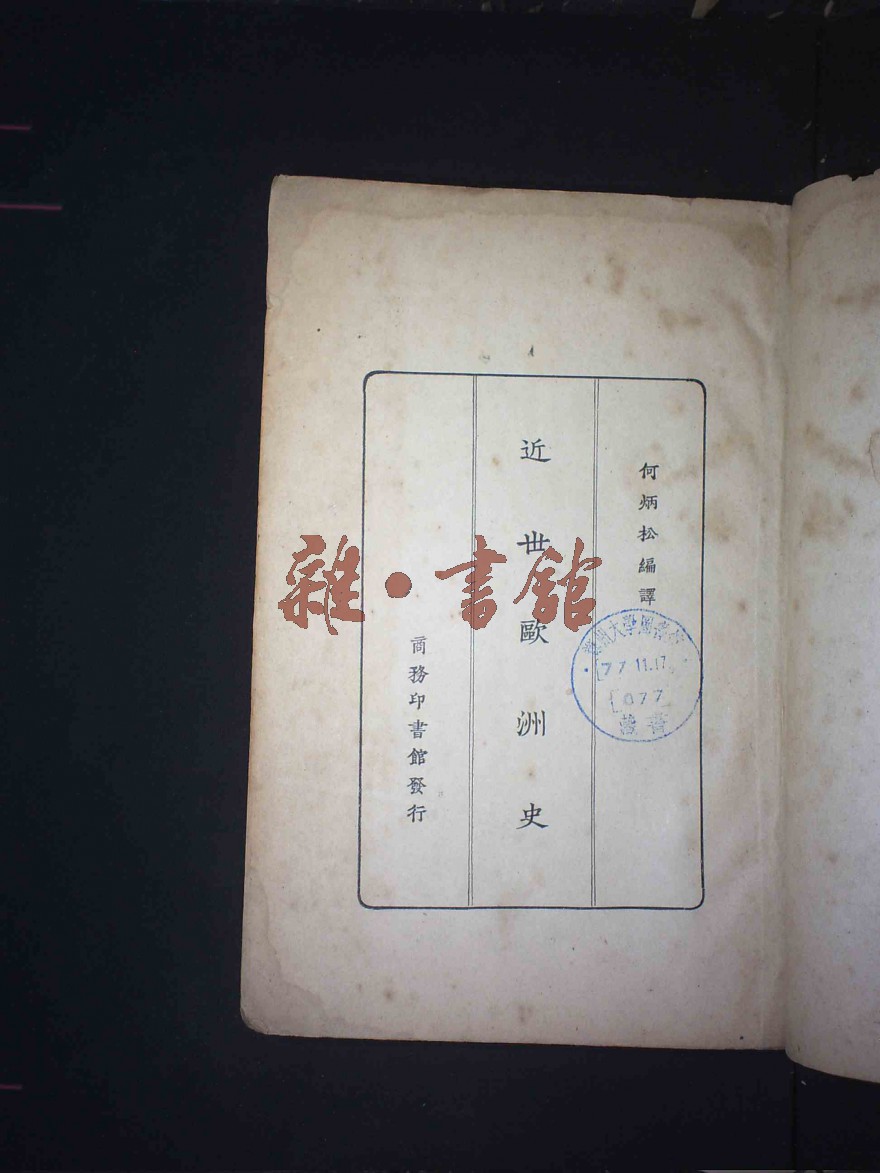 何炳松編譯
近世歐洲史
商務印書館發行
雜·書館
大學圖書館
77.11.17
077